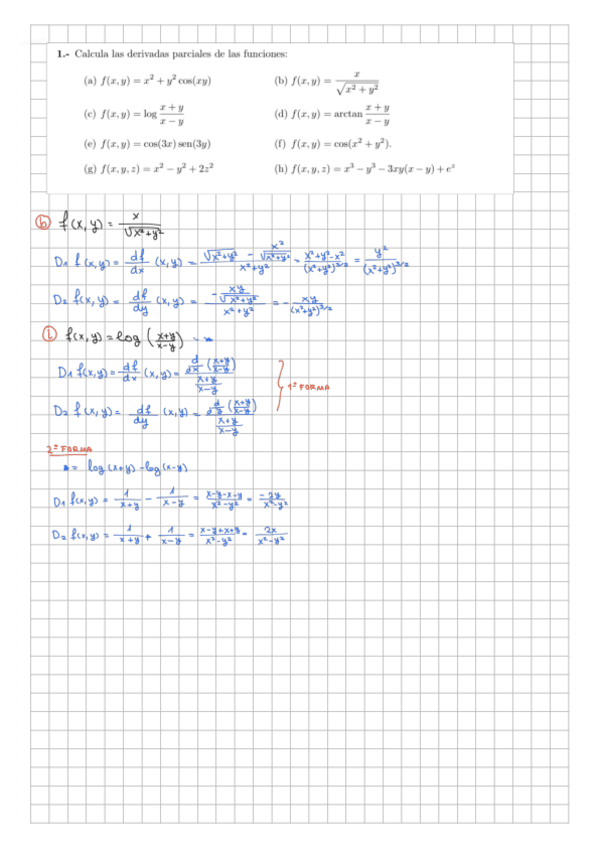 1.- Calcula las derivadas parciales de las funciones:
(a) f(x, y) = x² + y² cos(xy) (b) f(x, y) = x / √(x² + y²)
(c) f(x, y) = log (x + y)/(x − y) (d) f(x, y) = arctan (x + y)/(x − y)
(e) f(x, y) = cos(3x) sen(3y) (f) f(x, y) = cos(x² + y²).
(g) f(x, y, z) = x² − y² + 2z² (h) f(x, y, z) = x³ − y³ − 3xy(x − y) + eᶻ
(b) f(x, y) = x / √(x²+y²)
D₁ f(x, y) = df/dx (x, y) = (√(x²+y²) − x²/√(x²+y²)) / (x²+y²) = (x²+y²-x²) / (x²+y²)^(3/2) = y² / (x²+y²)^(3/2)
D₂ f(x, y) = df/dy (x, y) = (− xy/√(x²+y²)) / (x²+y²) = − xy / (x²+y²)^(3/2)
f(x, y) = log ((x+y)/(x−y))
D₁ f(x, y) = df/dx (x, y) = (d/dx ((x+y)/(x−y))) / ((x+y)/(x−y))
1ª FORMA
D₂ f(x, y) = df/dy (x, y) = (d/dy ((x+y)/(x−y))) / ((x+y)/(x−y))
2ª FORMA
= log (x+y) − log (x−y)
D₁ f(x, y) = 1/(x+y) − 1/(x−y) = (x−y−x−y)/(x²−y²) = −2y/(x²−y²)
D₂ f(x, y) = 1/(x+y) + 1/(x−y) = (x−y+x+y)/(x²−y²) = 2x/(x²−y²)